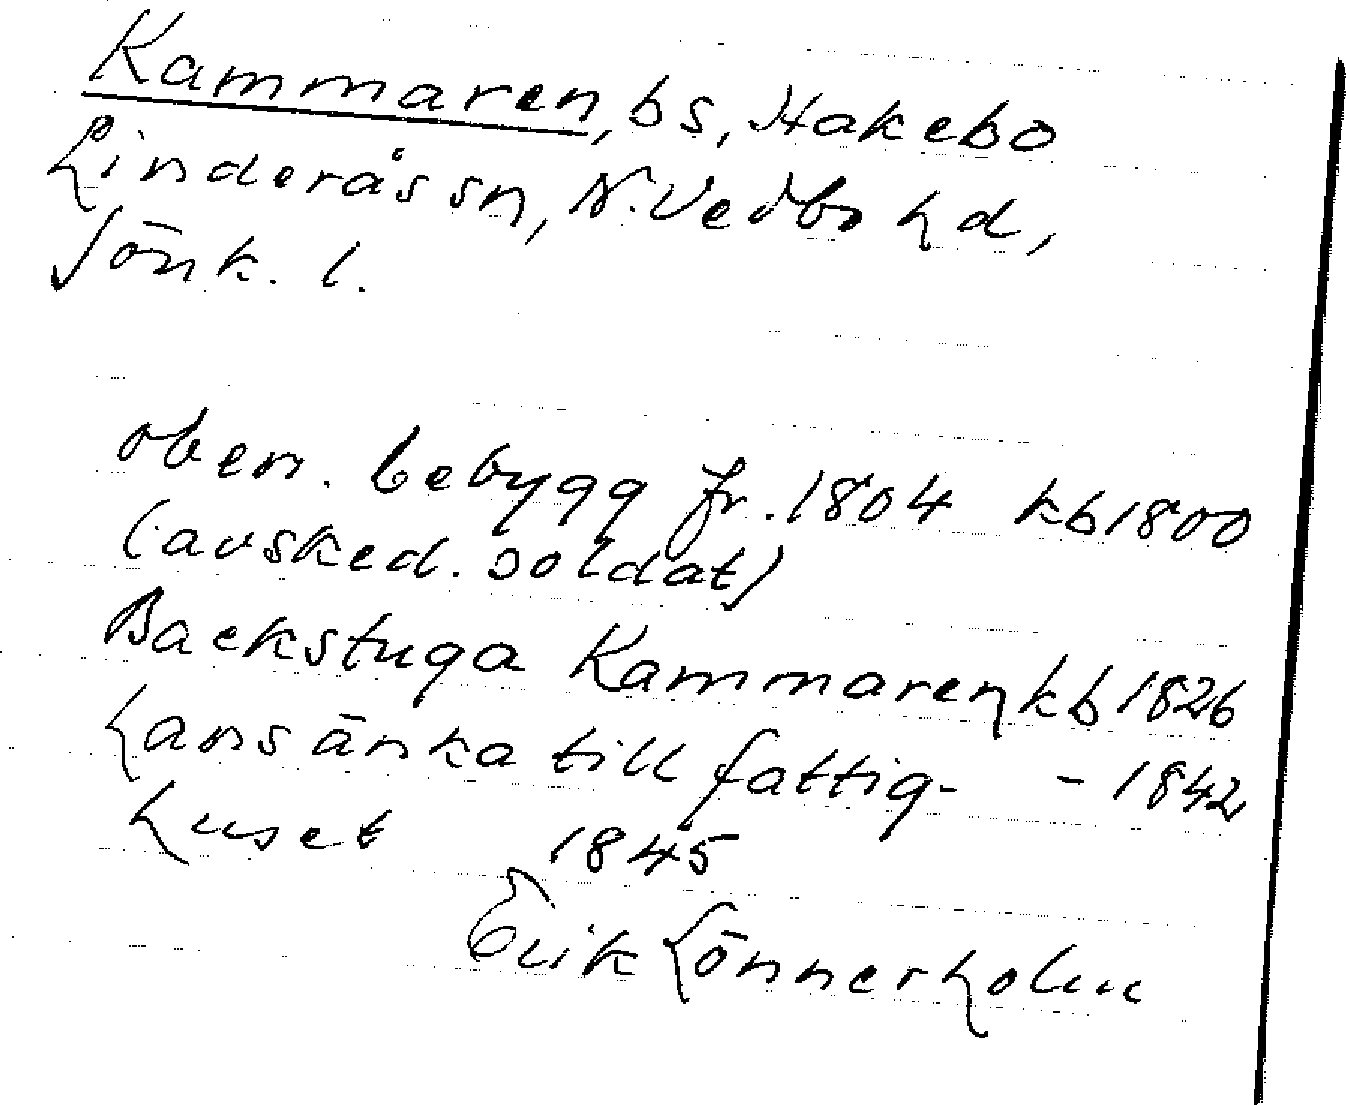 Kammaren, bs, Hakebo
Linderås sn, N. Vedbo hd,
Jönk. l.
oben. bebygg fr. 1804 kb 1800
(avsked. soldat)
Backstuga Kammaren kb 1826
hans änka till fattig- - 1842
huset 1845
Erik Lönnerholm